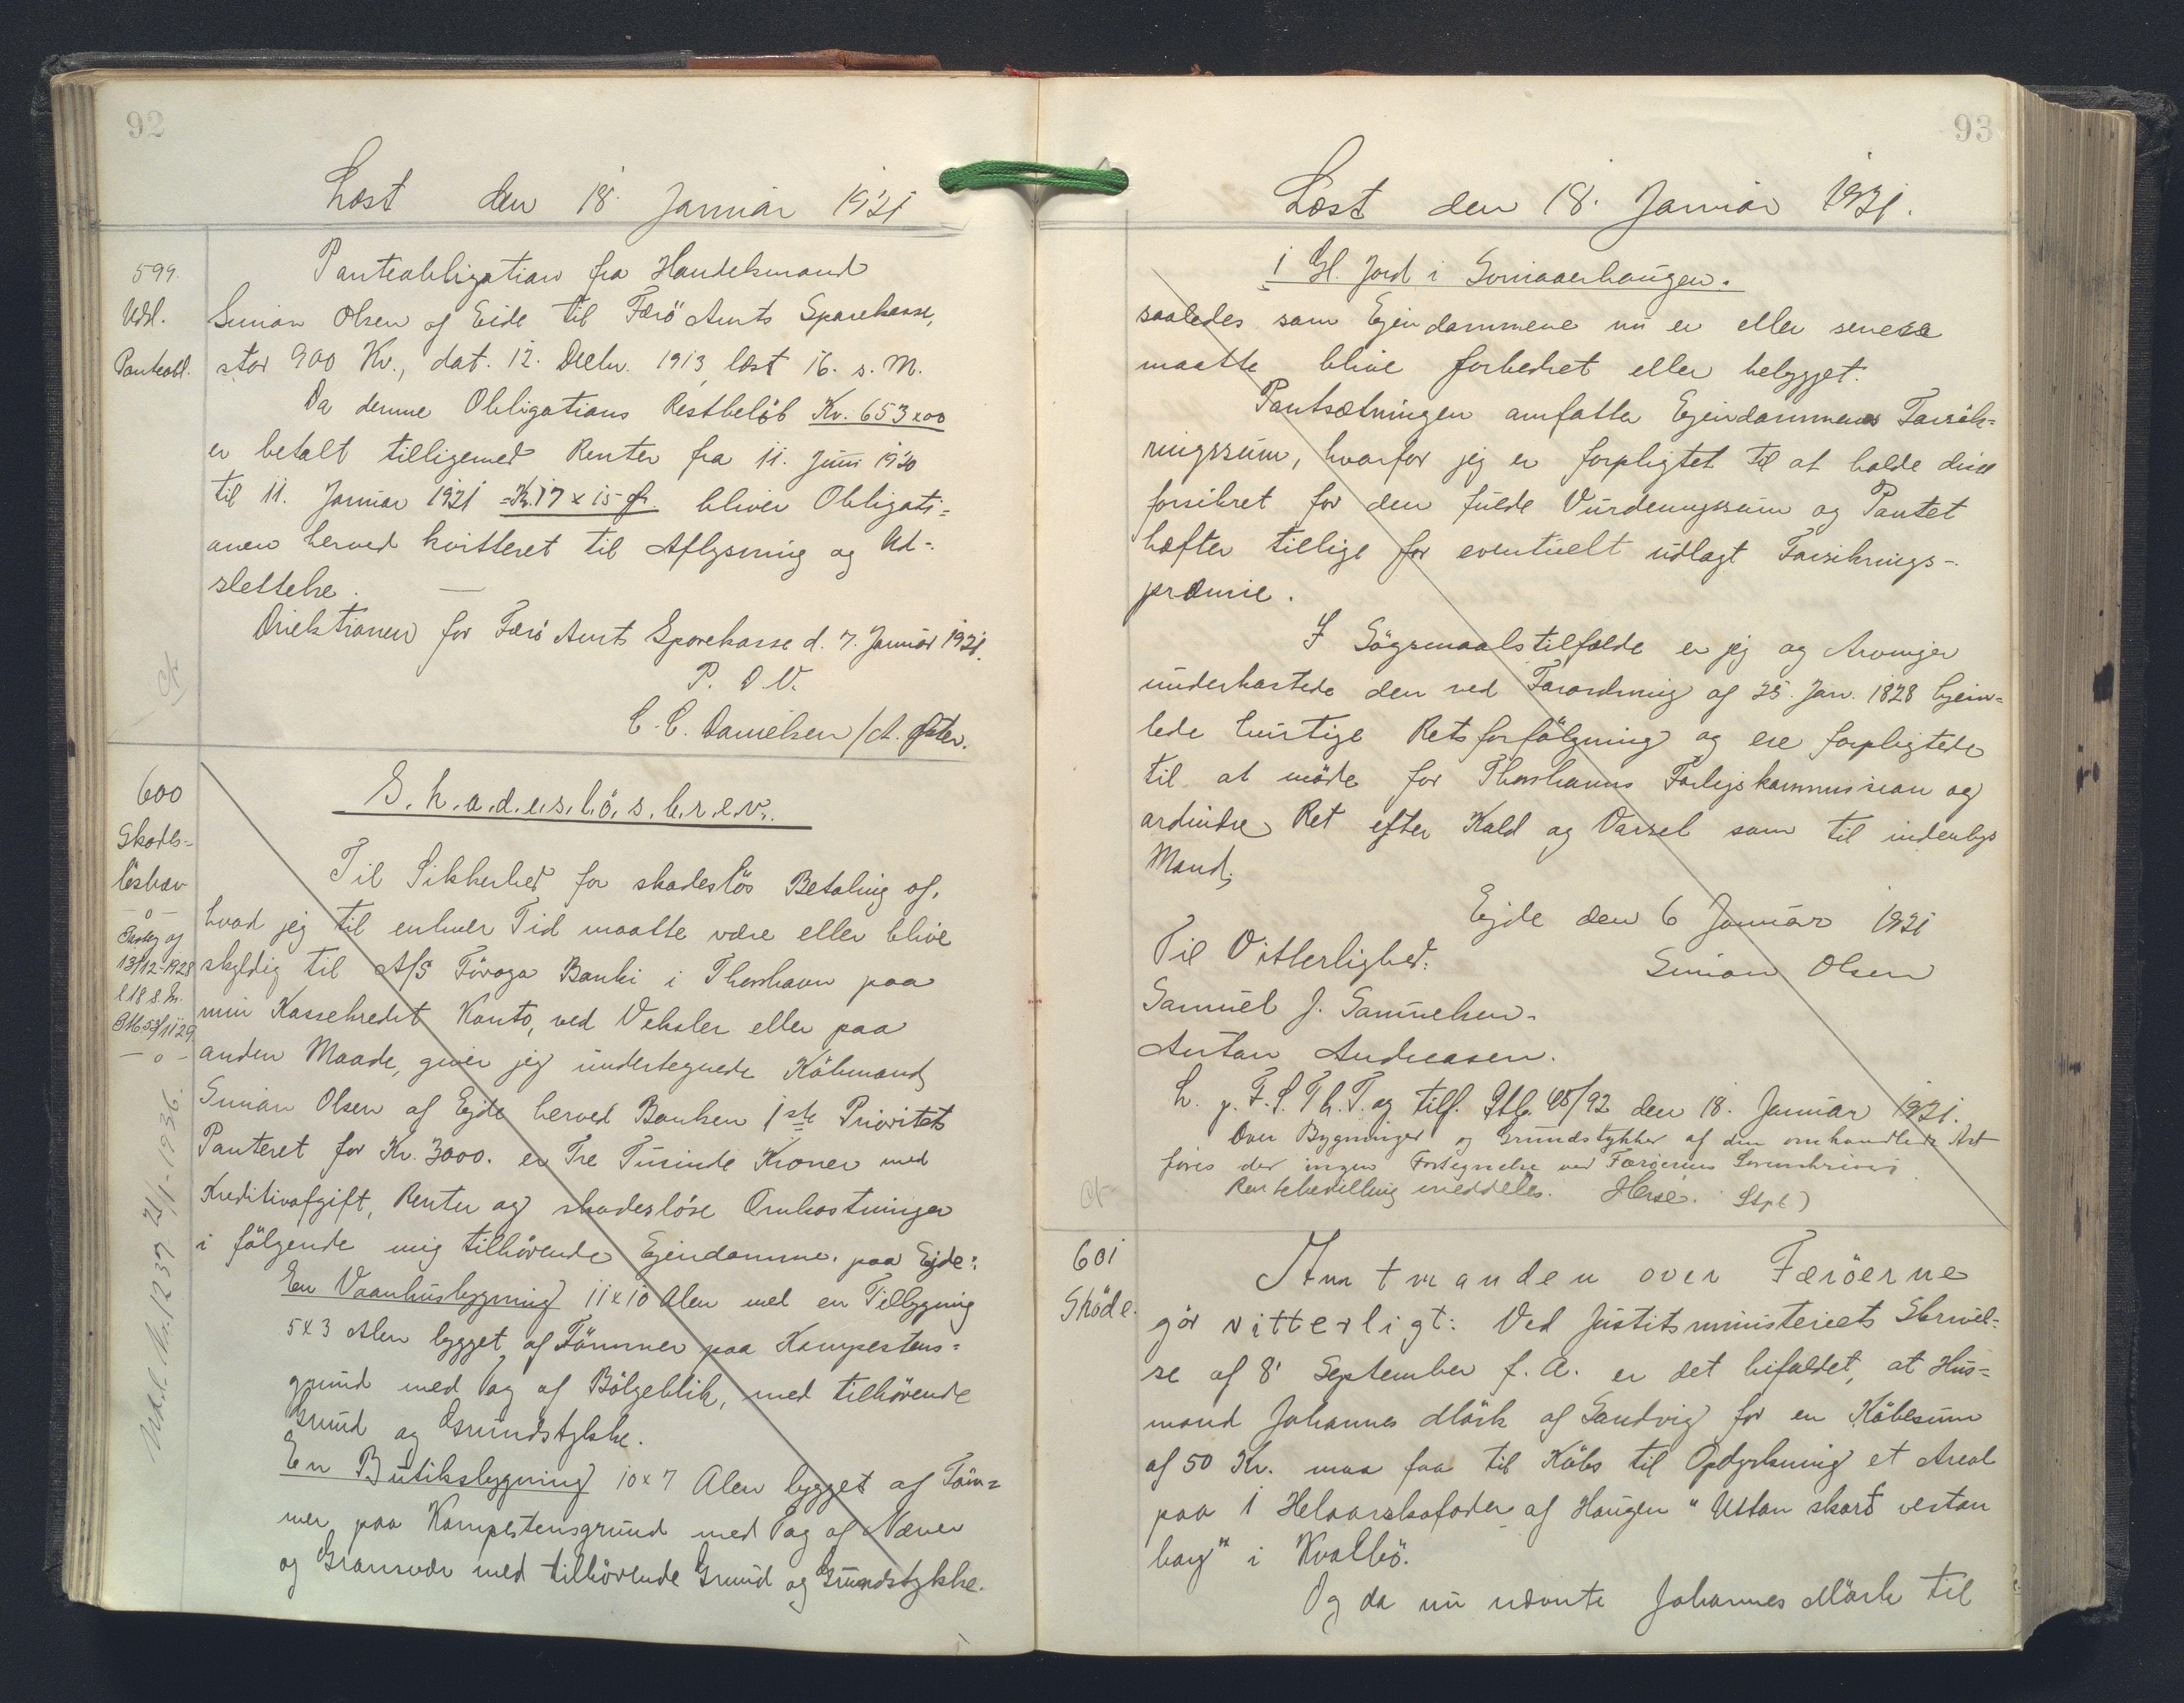 92
Læst den 18. Januar 1921
599.
Udsl.
Panteobl.
Panteobligation fra Handelsmand
Simion Olsen af Eide til Færö Amts Sparekasse,
stor 900 Kr., dat. 12. Decbr. 1913, læst 16. s. M.
Da denne Obligations Restbelöb Kr. 653 x 00
er betalt tilligemed Renter fra 11. Juni 1920
til 11. Januar 1921 = Kr. 17 x 15 bliver Obligati=
onen herved kvitteret til Aflysning og Ud-
slettelse.
Direktionen for Færö Amts Sparekasse d. 7. Januar 1921.
P. D. V.
C. C. Danielsen /
600
Skades=
lösbrev
S.k.a.d.e.s.l.ö.s.b.r.e.v.
Til Sikkerhed for skadeslös Betaling af,
hvad jeg til enhver Tid maatte være eller blive
13/12-1928 skyldig til A/S Föroya Banki i Thorshavn paa
l 18 s. M.
min Kassekredit Konto, ved Veksler eller paa
anden Maade, giver jeg undertegnede Köbmand
Simian Olsen af Ejde herved Banken 1ste Prioritets
Panteret for Kr. 3000. er Tre Tusinde Kroner med
Kreditivafgift, Renter og skadeslöse Omkostninger
i fölgende mig tilhörende Ejendomme paa Ejde:
En Vaanhusbygning 11 x 10 Alen med en Tilbygning
5 x 3 Alen bygget af Tömmer paa Kampestens=
grund med Tag af Bölgeblik, med tilhörende
Grund og Grundstykke.
En Butiksbygning 10 x 7 Alen bygget af Töm=
mer paa Kampestensgrund med Tag af Næver
og Grönsvær med tilhörende Grund og Grundstykke.
Udsl. Nr. 1237 21/1-1936.
93
Læst den 18. Januar 1921.
1 Gl. Jord i
saaledes som Ejendommene nu er eller senere
maatte blive forbedret eller bebygget.
Pantsætningen omfatter Ejendommenes Forsik=
ringssum, hvorfor jeg er forpligtet til at holde disse
forsikret for den fulde Vurderingssum og Pantet
hæfter tillige for eventuelt udlagt Forsikrings-
præmie.
I Sögsmaalstilfælde er jeg og Arvinger
underkastede den ved Forordning af 25. Jan. 1828 hjem=
lede hurtige Retsforfölgning og ere forpligtede
til at möde for Thorshavns Forligskommission og
ordinære Ret efter Kald og Varsel som til indenbys
Mand.
Ejde den 6 Januar 1921
Til Vitterlighed:
Simion Olsen
Samuel J. Samuelsen.
Anton Andreasen.
L. p. F. S. Th. T. og tilf. Ptb. 48/92 den 18. Januar 1921.
Over Bygninger og Grundstykker af den omhandlede Art
föres der ingen Fortegnelse ved Færöernes Sorenskriveri
Rentebevilling meddeles. Stpl.)
601
Sköde.
Amtmanden over Færöerne
gör vitterligt: Ved Justitsministeriets Skrivel=
se af 8' September f. A. er det bifaldet, at Hus=
mand Johannes Mörk af Sandvig for en Köbesum
af 50 Kr. maa faa til Köbs til Opdyrkning et Areal
paa 1 Helaarskofoder af Haugen "Uttan skarð vestan
hag" i Kvalbö.
Og da nu nævnte Johannes Mörk til